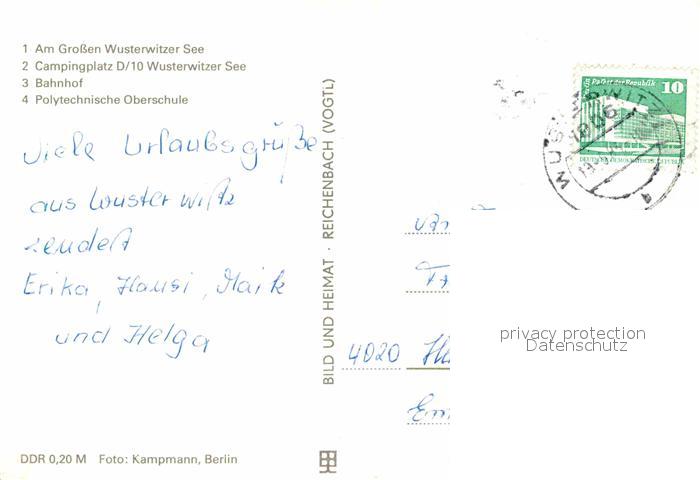 1 Am Großen Wusterwitzer See
2 Campingplatz D/10 Wusterwitzer See
3 Bahnhof
4 Polytechnische Oberschule
Viele Urlaubsgrüße
aus Wusterwitz
sendet
Erika, Hansi, Maik
und Helga
BILD UND HEIMAT · REICHENBACH (VOGTL)
Palast der Republik
10
DEUTSCHE DEMOKRATISCHE REPUBLIK
WUSTERWITZ
1806
4020
privacy protection
Datenschutz
DDR 0,20 M Foto: Kampmann, Berlin